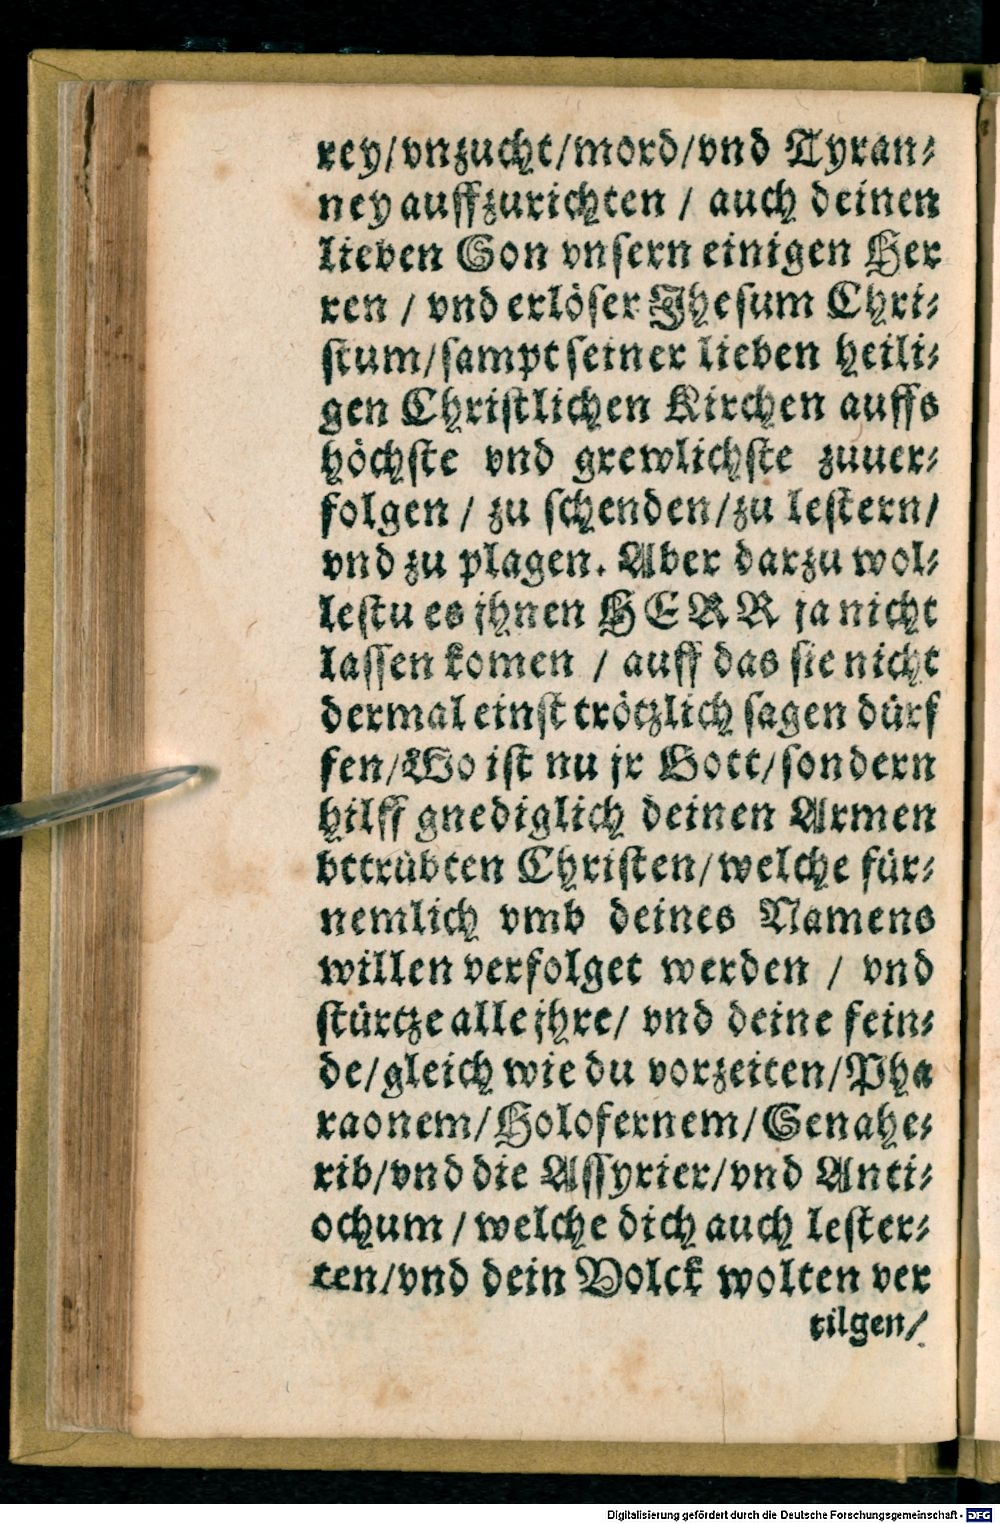 rey/vnzucht/mord/vnd Tyran-
ney auffzurichten / auch deinen
lieben Son vnsern einigen Her
ren / vnd erlöser Jhesum Chri-
stum/sampt seiner lieben heili-
gen Christlichen Kirchen auffs
höchste vnd grewlichste zuuer-
folgen / zu schenden/zu lestern/
vnd zu plagen. Aber darzu wol-
lestu es jhnen HERR ja nicht
lassen komen / auff das sie nicht
dermal einst trötzlich sagen dürf
fen/Wo ist nu jr Gott/sondern
hilff gnediglich deinen Armen
bttrübten Christen/welche für-
nemlich vmb deines Namens
willen verfolget werden / vnd
stürtze alle jhre/ vnd deine fein-
de/gleich wie du vorzeiten/Pha
raonem/Holofernem/Senahe-
rib/vnd die Assyrier/vnd Anti-
ochum / welche dich auch lester-
ten/vnd dein Volck wolten ver
tilgen/
Digitalisierung gefördert durch die Deutsche Forschungsgemeinschaft - DFG